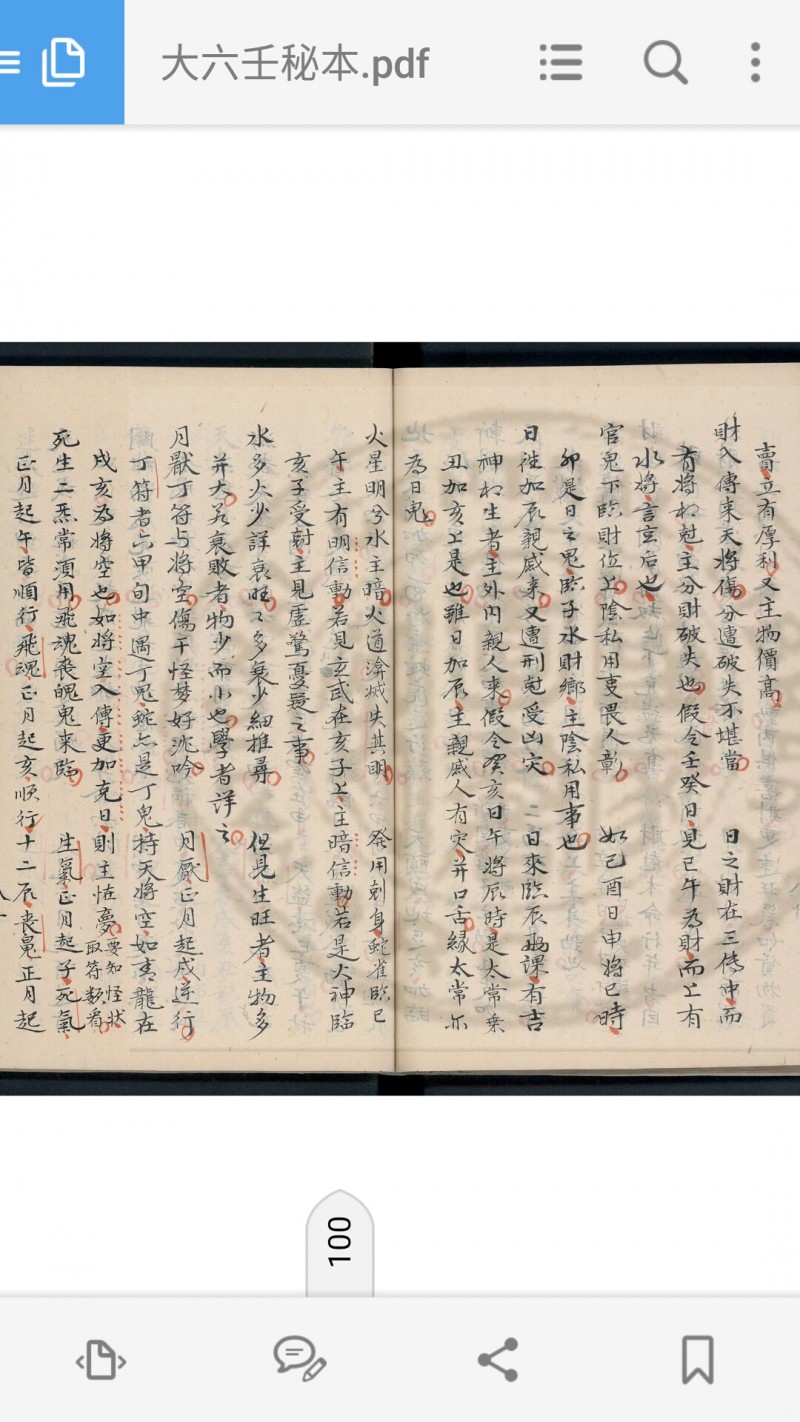 大六壬秘本.pdf
賣立有厚利又主物價高
財入傳来天將傷分遭破失不堪當 日之財在三傳中而
有將相尅主分財破失也假令壬癸日見巳午為財而上有
水將言玄后也
官鬼下臨財位上陰私用事畏人彰 如己酉日申將巳時
卯是日之鬼臨子水財鄉主陰私用事也
日徃加辰親戚来又遭刑尅受凶灾 二日來臨辰兩課有吉
神相生者主外内親人来假令癸亥日午將辰時是太常乗
丑加亥上是也雖日加辰主親戚人有灾并口舌緣太常尓
為日鬼
火星明兮水主暗火道渰滅失其明 發用剋身蛇雀臨巳
午主有明信動若見玄武在亥子上主暗信動若是火神臨
亥子受尅主見虛驚憂疑之事
水多火少詳衰旺旺多衰少細推尋 但見生旺者主物多
并大若衰敗者物少而小也學者詳之
月厭丁符与將空傷干怪梦好沈吟 月厭正月起戌逆行
丁符者六甲旬中遇丁鬼蛇亦是丁鬼持天將空如青龍在
戌亥為將空也如將空入傳更加克日則主怪夢要知怪狀取符数看
死生二炁常須用飛魂丧魄鬼来臨 生氣正月起子死氣
正月起午皆順行飛魂正月起亥順行十二辰丧鬼正月起
100